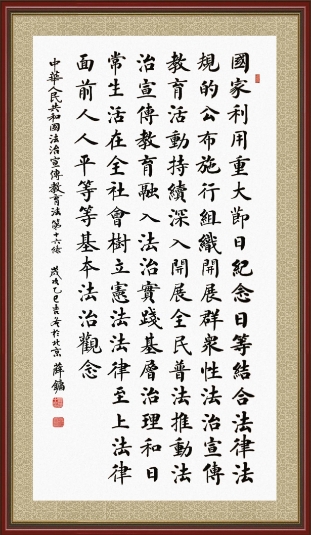 國家利用重大節日紀念日等結合法律法
規的公布施行組織開展群衆性法治宣傳
教育活動持續深入開展全民普法推動法
治宣傳教育融入法治實踐基層治理和日
常生活在全社會樹立憲法法律至上法律
面前人人平等等基本法治觀念
中華人民共和國法治宣傳教育法第十六條 歲次乙巳吉冬於北京 薛